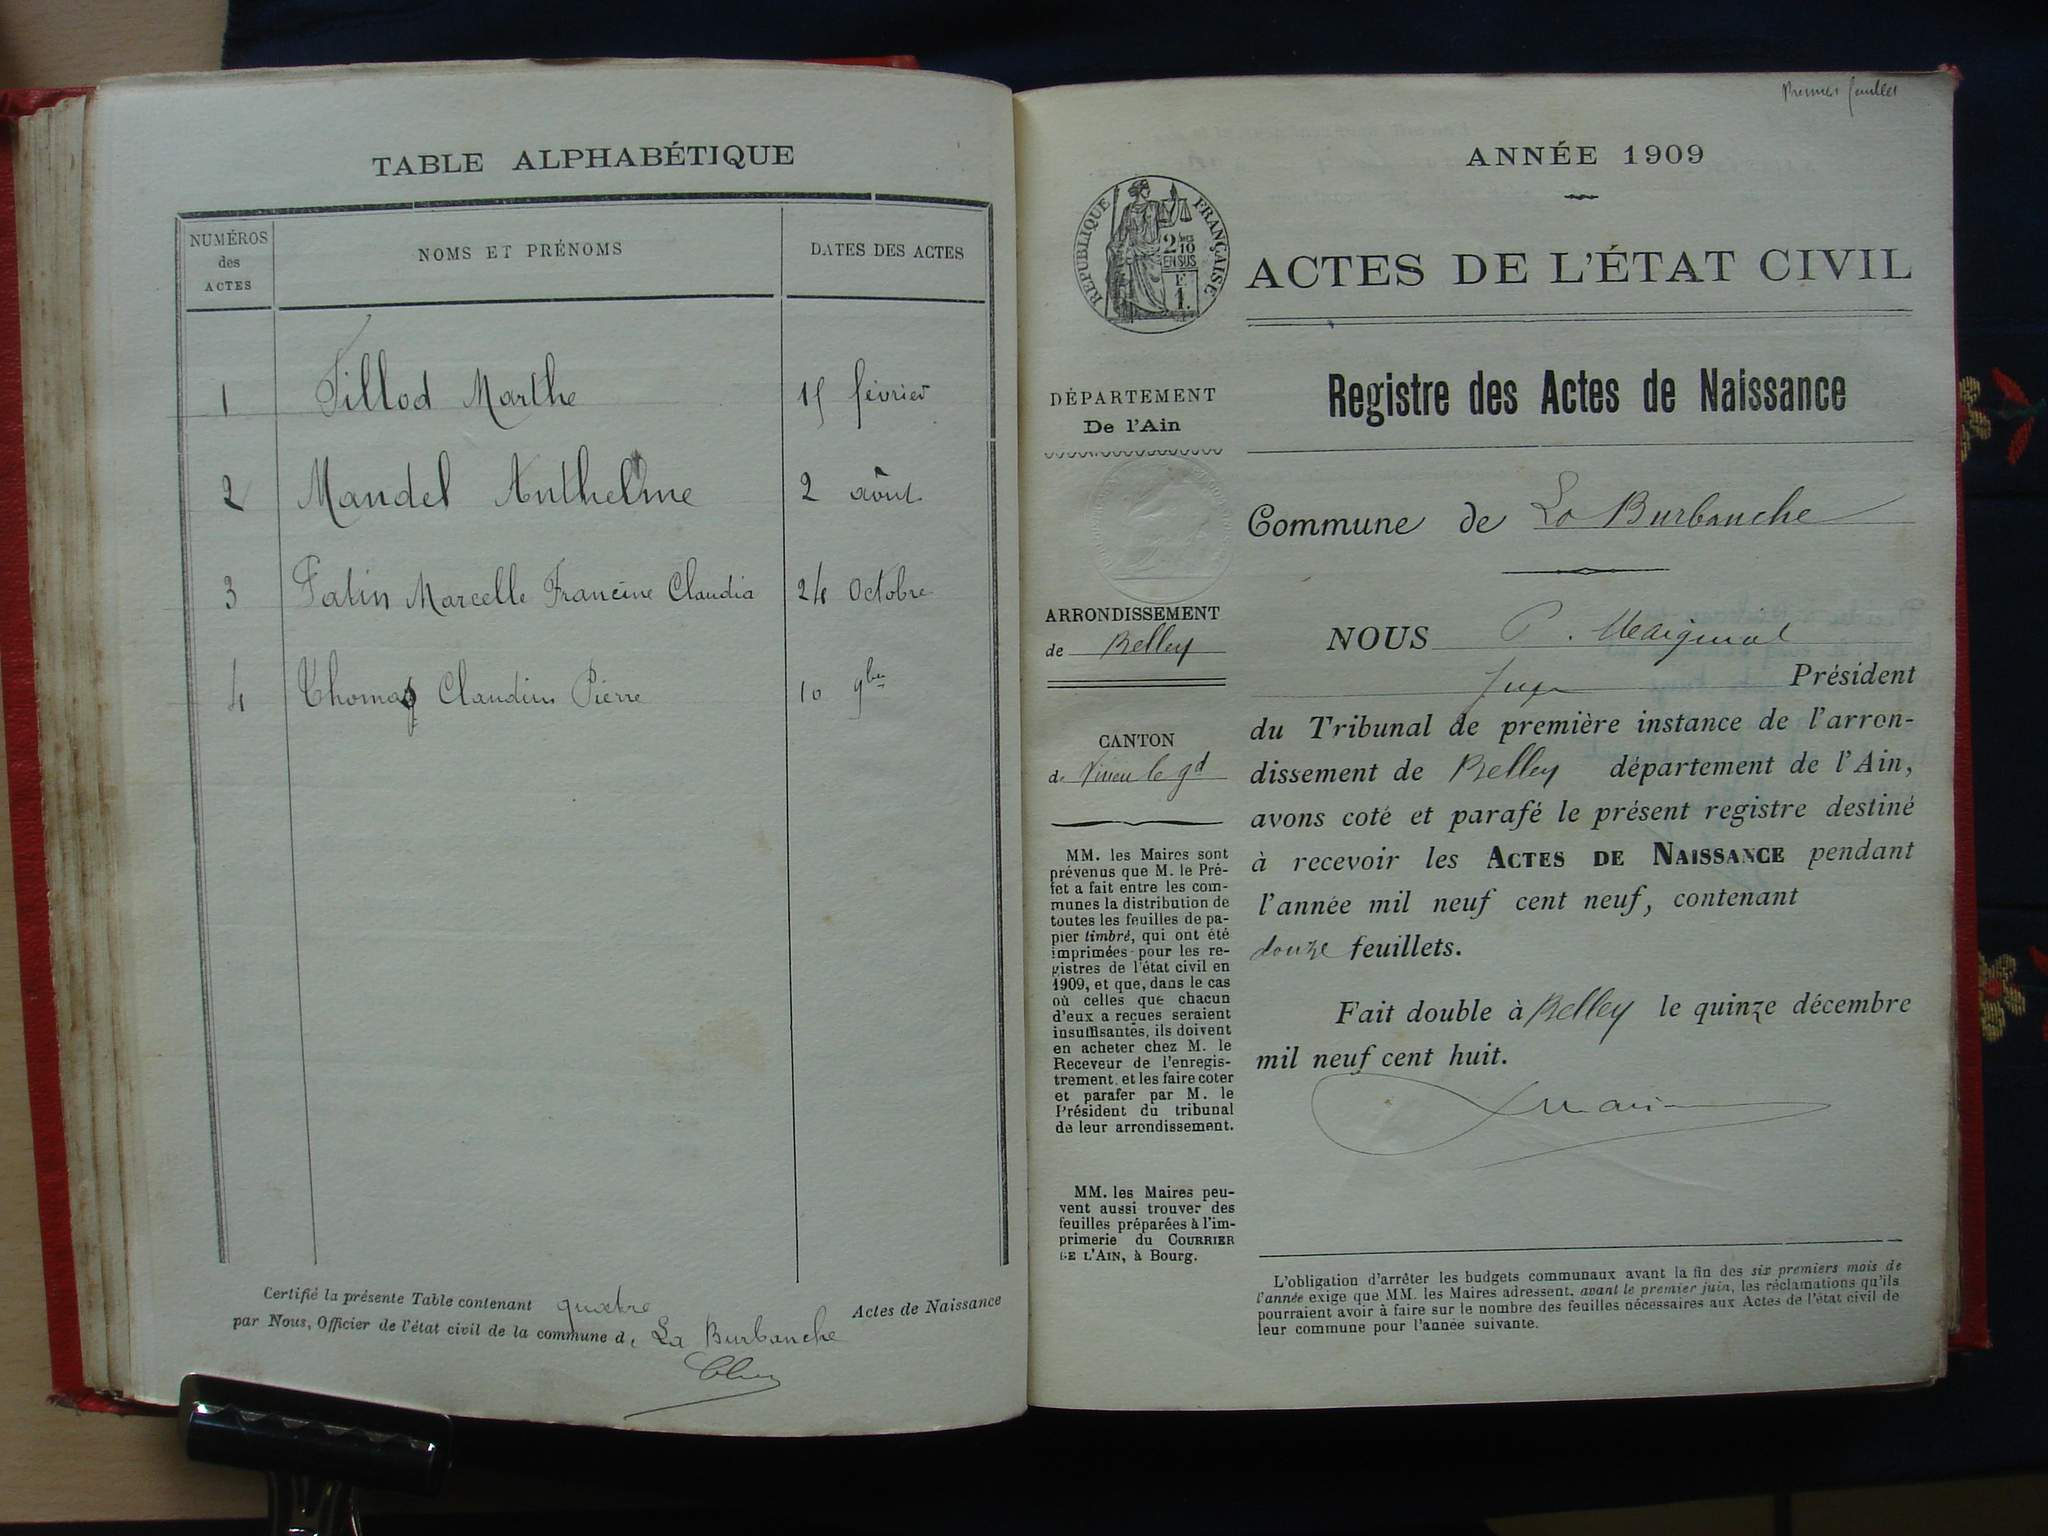 TABLE ALPHABÉTIQUE
NUMÉROS
des
ACTES
NOMS ET PRÉNOMS
DATES DES ACTES
1 Tillod Marthe 15 février
2 Mandel Anthelme 2 août
3 Patin Marcelle Francine Claudia 24 Octobre
4 Thomas Claudius Pierre 10 9bre
Certifié la présente Table contenant quatre Actes de Naissance
par Nous, Officier de l'état civil de la commune d, La Burbanche
Premier feuillet
ANNÉE 1909
RÉPUBLIQUE FRANÇAISE
2 10
EN SUS
1
ACTES DE L'ÉTAT CIVIL
DÉPARTEMENT
De l'Ain
ARRONDISSEMENT
de Belley
CANTON
de Virieu le gd
MM. les Maires sont
prévenus que M. le Pré-
fet a fait entre les com-
munes la distribution de
toutes les feuilles de pa-
pier timbré, qui ont été
imprimées pour les re-
gistres de l'état civil en
1909, et que, dans le cas
où celles que chacun
d'eux a reçues seraient
insuffisantes, ils doivent
en acheter chez M. le
Receveur de l'enregis-
trement, et les faire coter
et parafer par M. le
Président du tribunal
de leur arrondissement.
MM. les Maires peu-
vent aussi trouver des
feuilles préparées à l'im-
primerie du COURRIER
DE L'AIN, à Bourg.
Registre des Actes de Naissance
Commune de La Burbanche
NOUS P.
Juge Président
du Tribunal de première instance de l'arron-
dissement de Belley département de l'Ain,
avons coté et parafé le présent registre destiné
à recevoir les ACTES DE NAISSANCE pendant
l'année mil neuf cent neuf, contenant
douze feuillets.
Fait double à Belley le quinze décembre
mil neuf cent huit.
L'obligation d'arrêter les budgets communaux avant la fin des six premiers mois de
l'année exige que MM. les Maires adressent, avant le premier juin, les réclamations qu'ils
pourraient avoir à faire sur le nombre des feuilles nécessaires aux Actes de l'état civil de
leur commune pour l'année suivante.